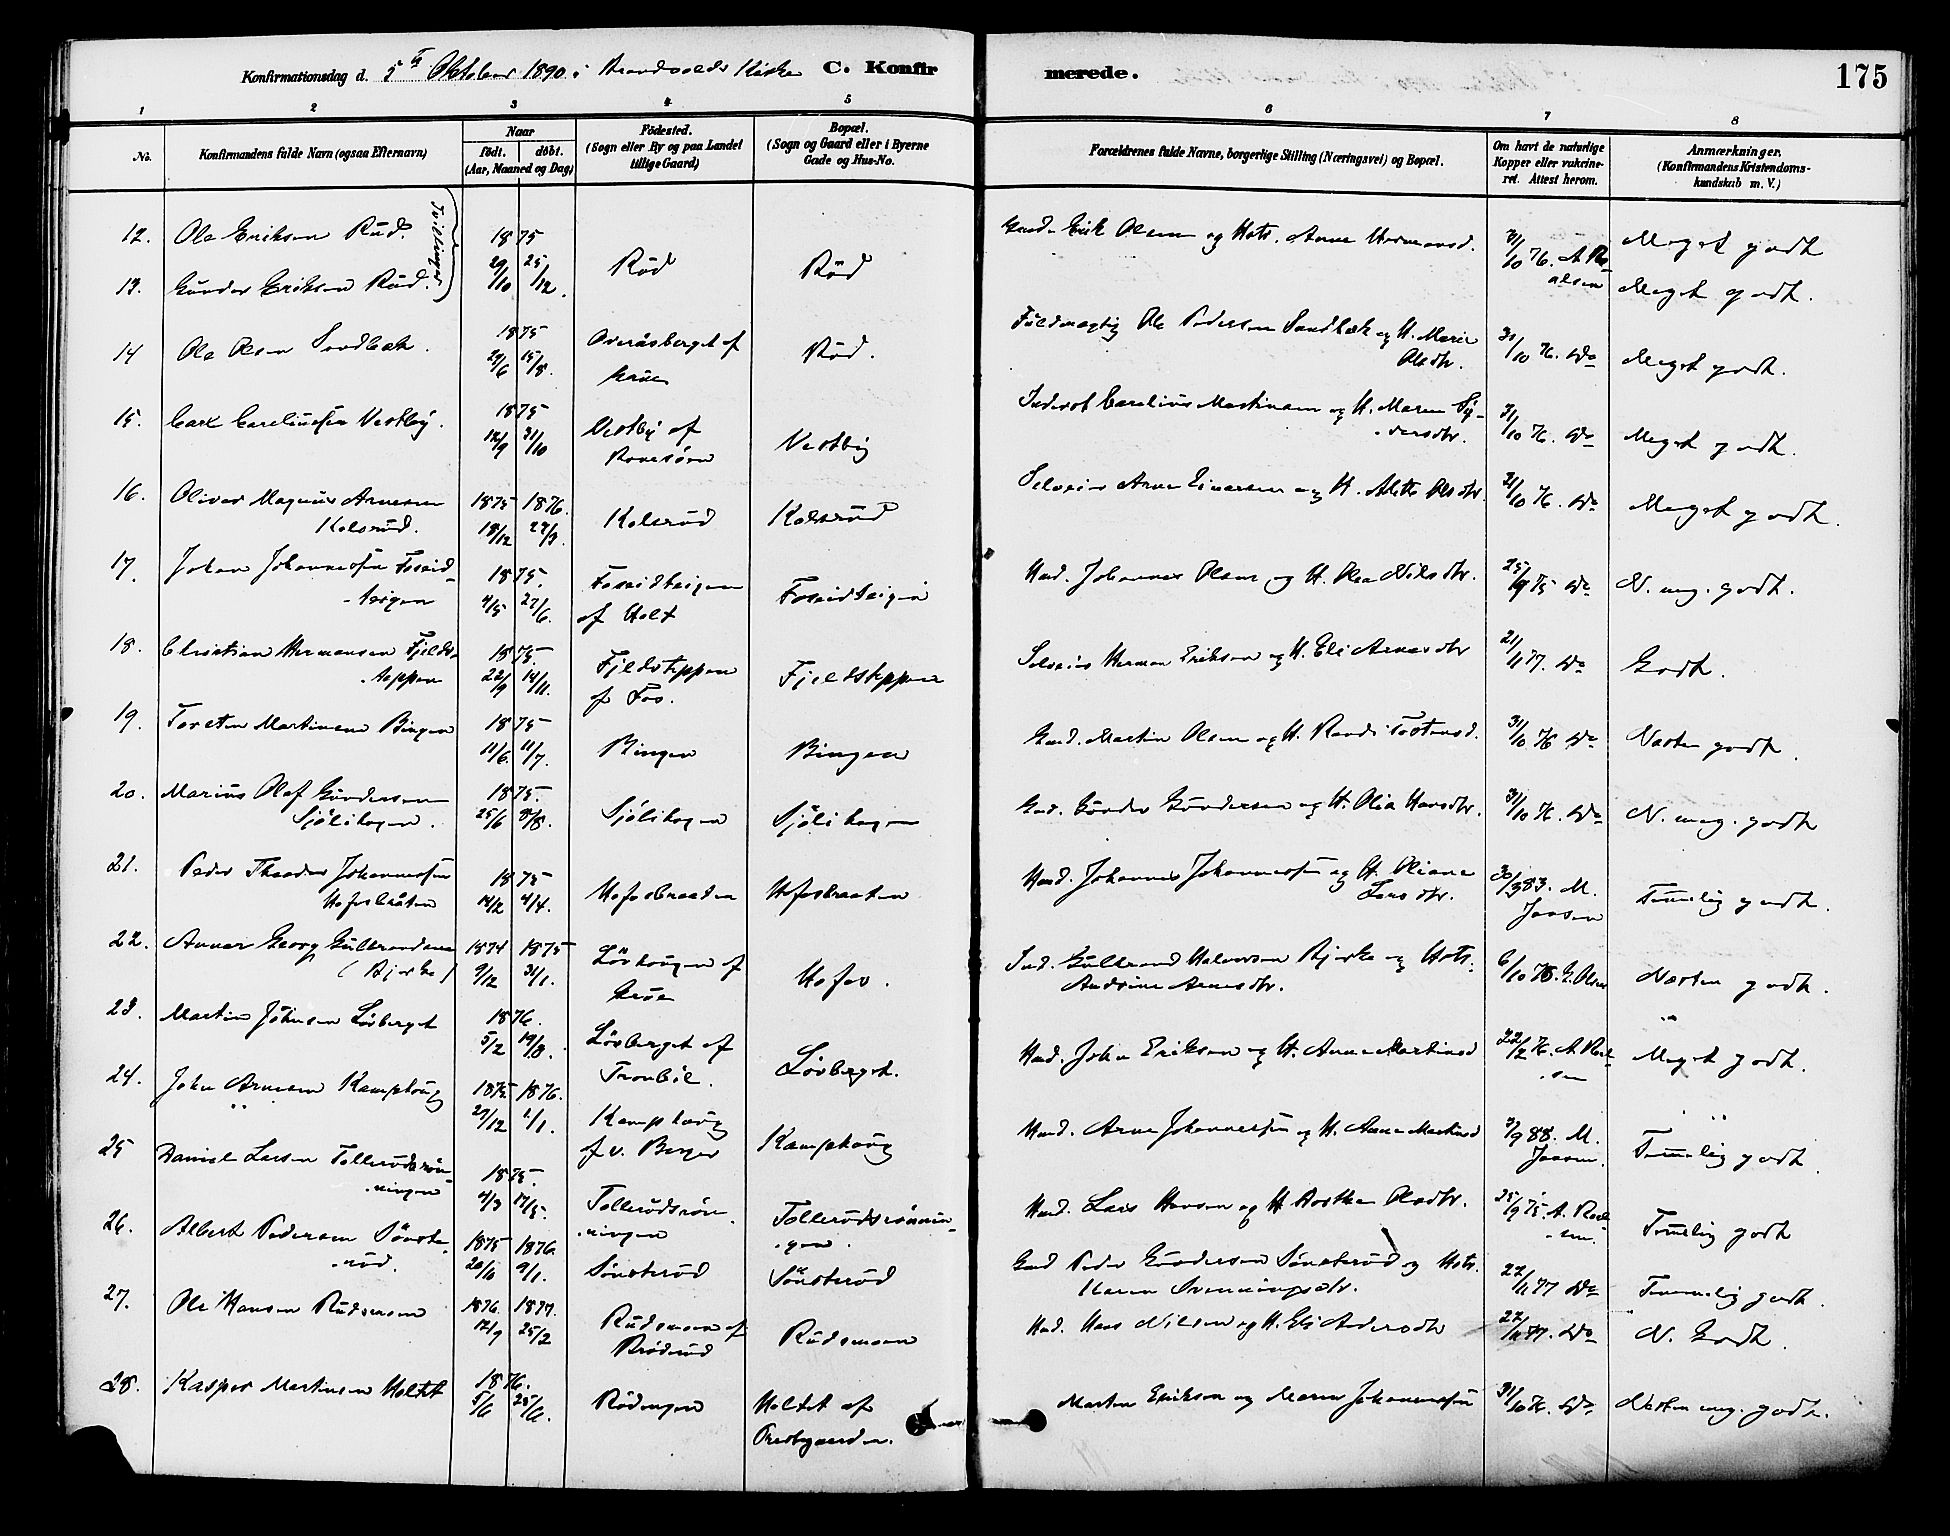 Konfirmationsdag d. 5te Oktober 1890 i Brandvolds Kirke C. Konfirmerede. 175
1 2 3 4 5 6 7 8
No. Konfirmandens fulde Navn (ogsaa Efternavn) Naar født. døbt. (Aar, Maaned og Dag) Fødested. (Sogn eller By og paa Landet tillige Gaard) Bopæl. (Sogn og Gaard eller i Byerne Gade og Hus-No. Forældrenes fulde Navne, borgerlige Stilling (Næringsvei) og Bopæl. Om havt de naturlige Kopper eller vakcineret. Attest herom. Anmærkninger. (Konfirmandens Kristendomskundskab m. V.)
12. Ole Eriksen Rud. Tvillinger 1875 29/10 25/12. Rød Rød Gmd. Erik Olsen og Hstr. Anne Hermansd. 31/10 76. Meget godt
13. Gunder Eriksen Rud. Meget godt.
14 Ole Olsen Sandbæk. 1875 29/6 15/8. Overåsberget af Grue Rød. Fuldmægtig Ole Pedersen Sandbæk og H. Marie Olsdtr. 31/10 76. Do Meget godt.
15. Carl Careliussen Vestby. 1875 12/9 31/10 Vestby af Vestby Inderst Carelius Martinsen og H. Maren 31/10 76. Do Meget godt.
16. Oliver Magnus Arnesen Kolsrud. 1875 18/12 1876. Kolsrud Kolsrud Selveier Arne Einersen og H. Alette Olsdtr. 31/10 76. Do Meget godt.
17. Johan Johannessen Fosseidteigen 1875. 4/5 27/6. Fosseidteigen af Holt Fosseidteigen Hmd. Johannes Olsen og H. Olea Nilsdtr. 25/9 75 Do N. meg. godt.
18. Christian Hermansen Fjeldsteppen 1875. 22/9 14/11. Fjeldsteppen af Fos. Fjeldsteppen Selveier Herman Eriksen og H. Eli Arnesdtr 21/11 77. Do Godt.
19. Torsten Martinsen Bingen 1875 11/6. 11/7. Bingen Bingen Gmd. Martin Olsen og H. Randi Tostensd. 31/10 76 Do Næsten godt.
20. Marius Olaf Gundersen Sjølihagen. 1875. 25/6 8/8. Sjølihagen Sjølihagen Gmd. Gunder Gundersen og H. Olia Hansdtr. 31/10 76. Do N. meg. godt
21. Peder Theodor Johannessen Hofosbråten 1875 14/2 4/4. Hofosbraaten Hofosbraaten Hmd. Johannes Johannessen og H. Oliane Larsdtr. 30/3 83. M. Jensen Temmelig godt.
22. Anner Georg Gulbrandsen (Bjerke) 1874 9/12 1875 31/1. Løvhaugen af Grue Hofos. Ind. Gulbrand Halvorsen Bjerke og Hstr. Andrine Arnesdtr. 6/10 78. G. Olsen Næsten godt.
23. Martin Johnsen Løvberget 1876. 5/2 19/3. Løvberget af Tronbøl. Løvberget. Hmd. John Eriksen og H. Anne Martinsd 22/2 76. Meget godt.
24. John Arnesen Kamphoug 1875 29/12 1876. 1/1. Kamphoug af v. Berger Kamphoug Hmd. Arne Johannessen og H. Anne Martinsd 3/9 88. M. Jensen. Temmelig godt.
25 Daniel Larsen Tollerudsrønningen 1875. 4/3 17/5. Tollerudsrønningen Tollerudsrønningen. Hmd. Lars Hansen og H. Olsdtr. 25/9 75. Temmelig godt
26. Albert Pedersen Sønsterud. 1875 20/10 1876. 9/1. Sønsterud Sønsterud Gmd Peder Gundersen Sønsterud og Hstr. Karen Svenningsdtr. 22/11 77 Do Temmelig godt.
27. Ole Hansen Rudsmoen 1876. 12/9 1877. 25/2 Rudsmoen af Brøderud Rudsmoen Hmd. Hans Nilsen og H. Eli Andersdtr 22/11 77. Do N. Godt.
28. Kasper Martinsen Holtet 1876. 5/6 25/6. Rødengen Holtet af Prestegaarden. Marten Eriksen og Maren Johannessen 31/10 76. Do. Næsten meg. godt.